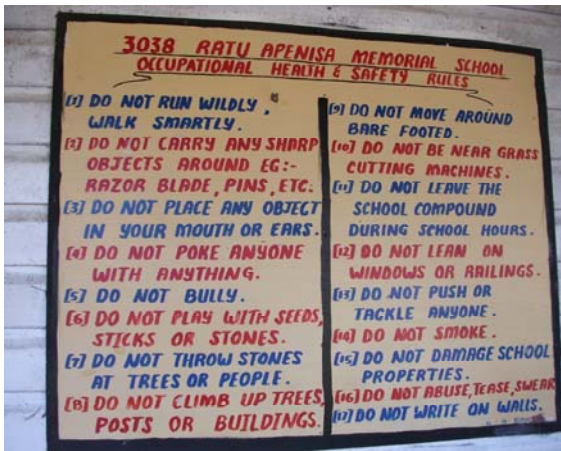 3038 RATU APENISA MEMORIAL SCHOOL
OCCUPATIONAL HEALTH & SAFETY RULES
[1] DO NOT RUN WILDLY,
WALK SMARTLY.
[2] DO NOT CARRY ANY SHARP
OBJECTS AROUND EG:-
RAZOR BLADE, PINS, ETC.
[3] DO NOT PLACE ANY OBJECT
IN YOUR MOUTH OR EARS.
[4] DO NOT POKE ANYONE
WITH ANYTHING.
[5] DO NOT BULLY.
[6] DO NOT PLAY WITH SEEDS,
STICKS OR STONES.
[7] DO NOT THROW STONES
AT TREES OR PEOPLE.
[8] DO NOT CLIMB UP TREES,
POSTS OR BUILDINGS.
[9] DO NOT MOVE AROUND
BARE FOOTED.
[10] DO NOT BE NEAR GRASS
CUTTING MACHINES.
[11] DO NOT LEAVE THE
SCHOOL COMPOUND
DURING SCHOOL HOURS.
[12] DO NOT LEAN ON
WINDOWS OR RAILINGS.
[13] DO NOT PUSH OR
TACKLE ANYONE.
[14] DO NOT SMOKE.
[15] DO NOT DAMAGE SCHOOL
PROPERTIES.
[16] DO NOT ABUSE, TEASE, SWEAR
[17] DO NOT WRITE ON WALLS.